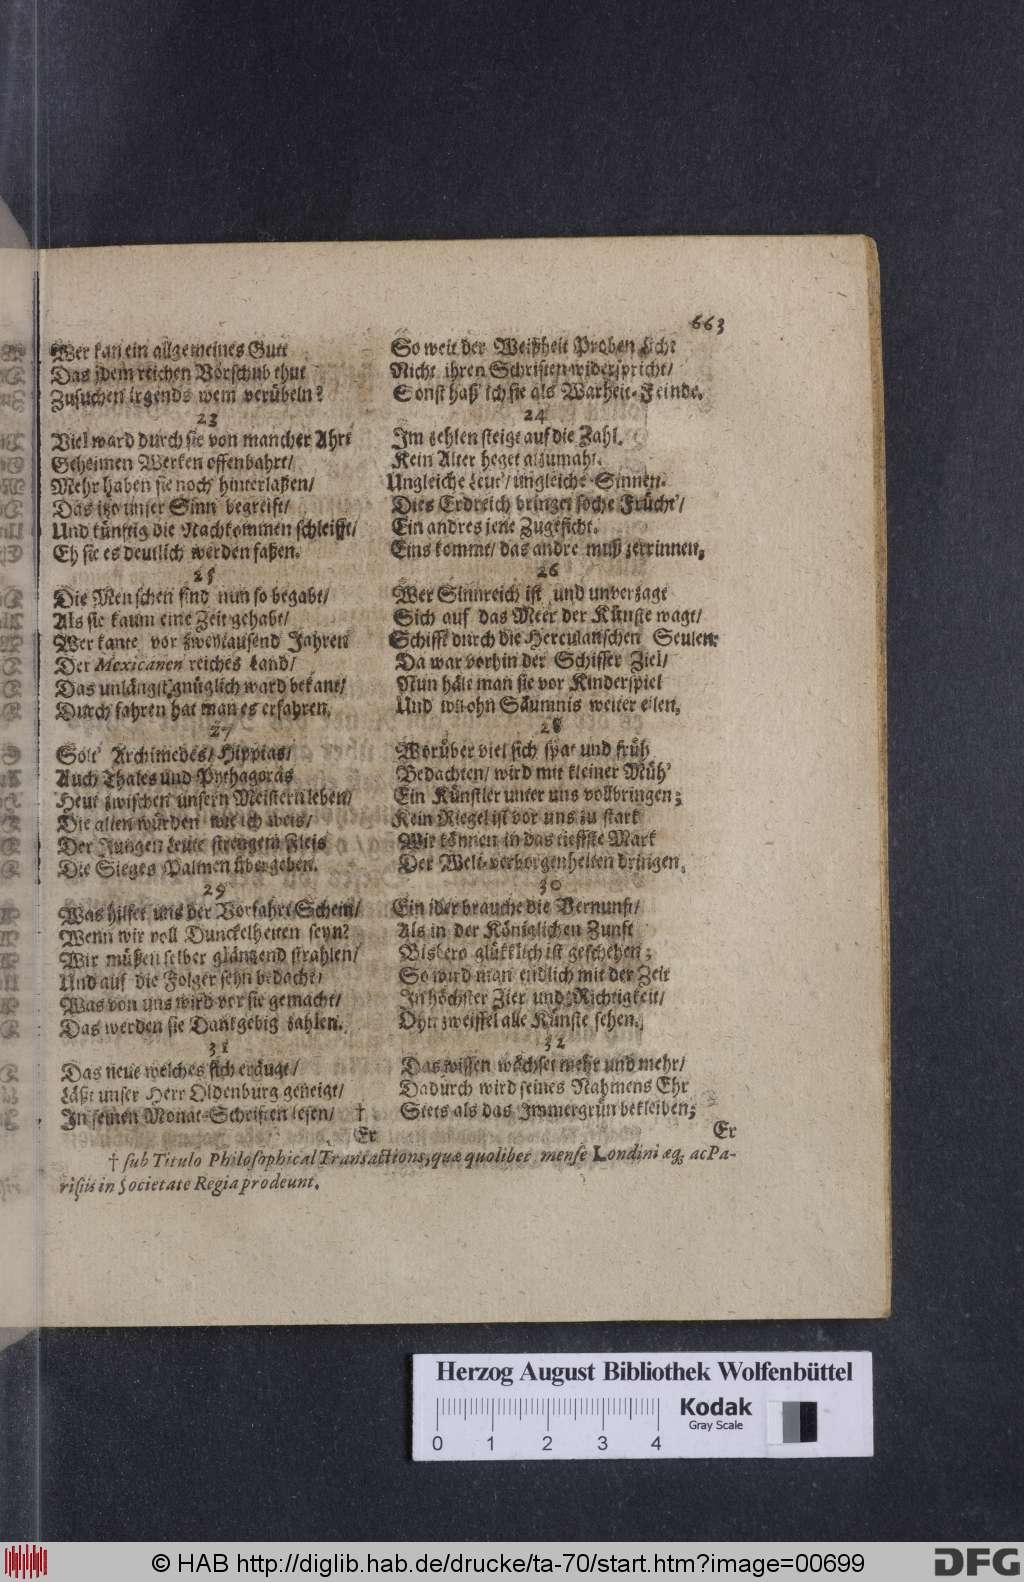 663
Wer kan ein allgemeines Gutt
Das jdem reichen Vorschub thut
Zusuchen irgends wem verübeln?
23
Viel ward durch sie von mancher Ahrt
Geheimen Werken offenbahrt/
Mehr haben sie noch hinterlaßen/
Das itzo unser Sinn begreift/
Und künftig die Nachkommen schleifft/
Eh sie es deutlich werden faßen.
25
Die Menschen sind nun so begabt/
Als sie kaum eine Zeit gehabt/
Wer kante vor zweytausend Jahren
Der Mexicanen reiches Land/
Das unlängst gnüglich ward bekant/
Durch fahren hat man es erfahren.
27
Solt' Archimedes/ Hippias/
Auch Thales und Pythagoras
Heut zwischen unsern Meistern leben/
Die alten würden wie ich weis/
Der Jungen Leute strengem Fleis
Die Sieges Palmen übergeben.
29
Was hilfet uns der Vorfahrt Schein/
Wenn wir voll Dunckelheiten seyn?
Wir müßen selber gläntzend strahlen/
Und auf die Folger sehn bedacht/
Was von uns wird vor sie gemacht/
Das werden sie Dankgebig zahlen.
31
Das neue welches sich eräugt/
Läßt unser Herr Oldenburg geneigt/
In seinen Monat-Schriften lesen/ †
Er
So weit der Weißheit Proben Licht
Nicht ihren Schriften widerspricht/
Sonst haß' ich sie als Warheit-Feinde.
24
Im zehlen steigt auf die Zahl.
Kein Alter heget alzumahl.
Ungleiche Leut'/ ungleiche Sinnen.
Dies Erdreich bringet solche Frücht'/
Ein andres jene Zugesicht.
Eins kommt/ das andre muß zerrinnen.
26
Wer Sinnreich ist und unverzagt
Sich auf das Meer der Künste wagt/
Schifft durch die Herculanschen Seulen.
Da war vorhin der Schiffer Ziel/
Nun hält man sie vor Kinderspiel
Und wil ohn Säumnis weiter eilen.
28
Worüber viel sich spat und früh
Bedachten/ wird mit kleiner Müh'
Ein Künstler unter uns vollbringen;
Kein Riegel ist vor uns zu stark
Wir können in das tieffste Mark
Der Welt-verborgenheiten dringen.
30
Ein ider brauche die Vernunft/
Als in der Königlichen Zunft
Bishero glükklich ist geschehen;
So wird man endlich mit der Zeit
In höchster Zier und Richtigkeit/
Ohn zweiffel alle Künste sehen.
32
Das wissen wächset mehr und mehr/
Dadurch wird seines Nahmens Ehr
Stets als das Immergrün bekleiben;
Er
† sub Titulo Philosophical Transactions, quæ quolibet mense Londini æq; ac Pa-
risiis in Societate Regia prodeunt.
Herzog August Bibliothek Wolfenbüttel
0 1 2 3 4
Kodak
Gray Scale
© HAB http://diglib.hab.de/drucke/ta-70/start.htm?image=00699
DFG